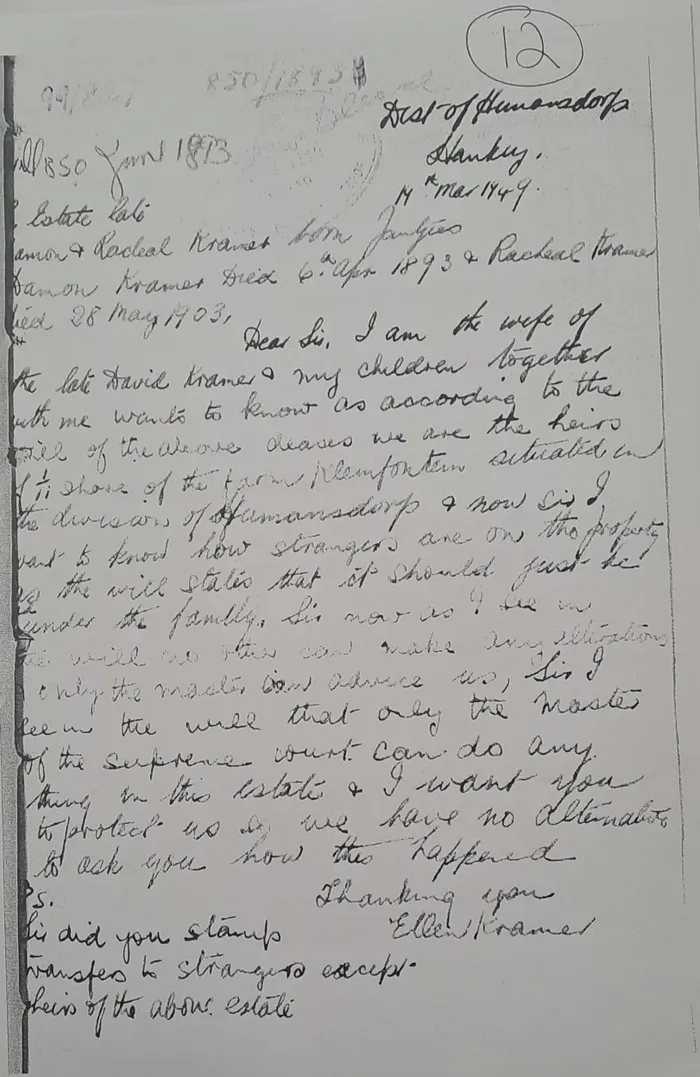 12
850/1893
Dist of Humansdorp
Hankey.
850 June 1893
Mar 1949.
Estate late
amon & Racheal Kramer born Jantjies
Damon Kramer Died 6th Apr 1893 & Racheal Kramer
ied 28 May 1903,
Dear Sir, I am the wife of
the late David Kramer & my children together
with me wants to know as according to the
will of the above deases we are the heirs
1/11 share of the farm Kleinfontein situated in
the division of Humansdorp & now Sir I
want to know how strangers are on the property
as the will states that it should just be
under the family. Sir now as I see in
the will no other can make any alterations
only the master can advice us, Sir I
see in the will that only the Master
of the supreme court can do any
thing in this estate & I want you
to protect us as we have no alternative
to ask you how this happened
Ps. Thanking you
Sir did you stamp Ellen Kramer
transfers to strangers except
heirs of the above estate